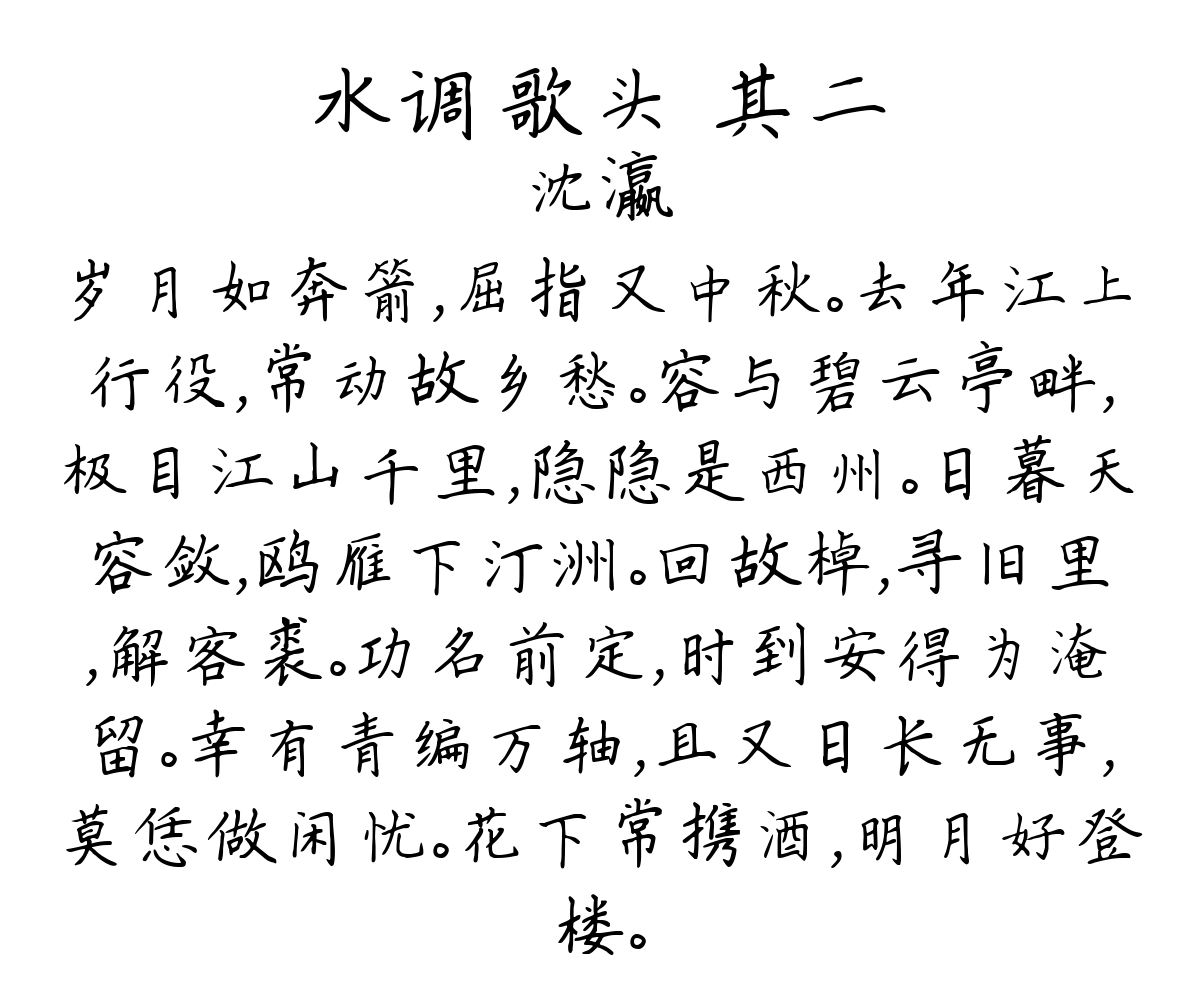 水调歌头 其二
沈瀛
岁月如奔箭,屈指又中秋。去年江上
行役,常动故乡愁。容与碧云亭畔,
极目江山千里,隐隐是西州。日暮天
容敛,鸥雁下汀洲。回故棹,寻旧里
,解客裘。功名前定,时到安得为淹
留。幸有青编万轴,且又日长无事,
莫恁做闲忧。花下常携酒,明月好登
楼。